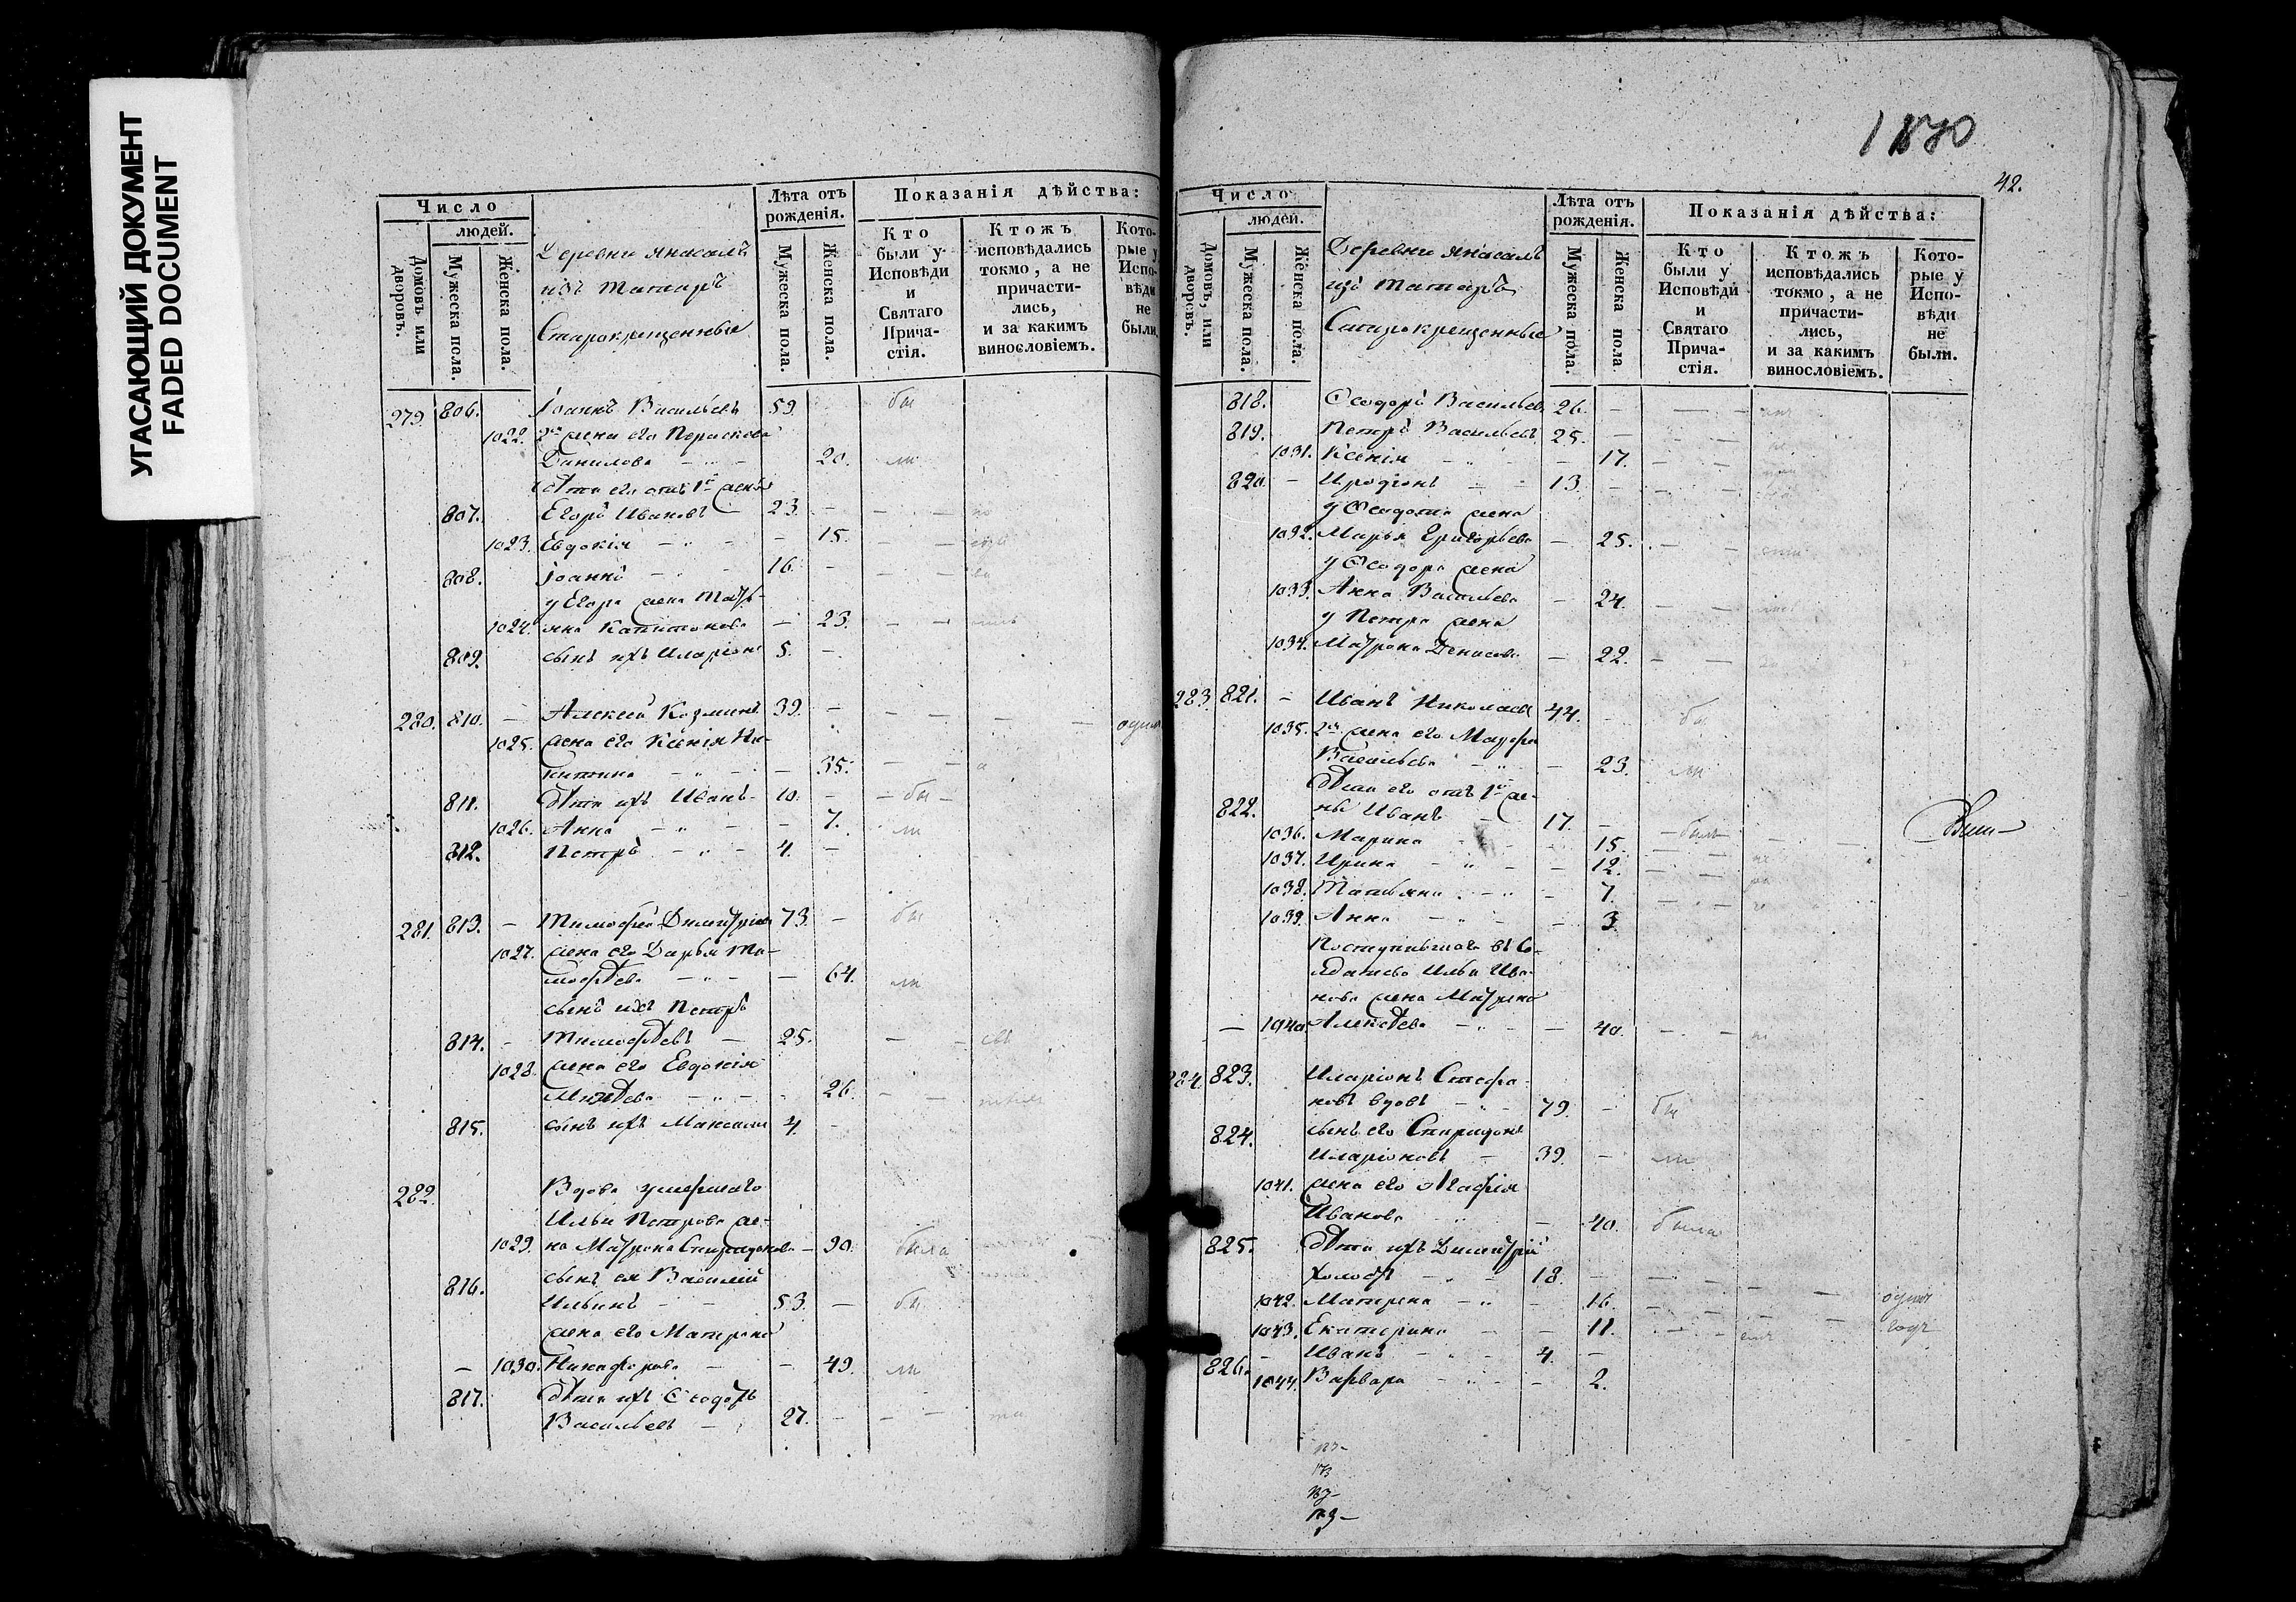 УГАСАЮЩИЙ ДОКУМЕНТ
FADED DOCUMENT
Число
людей.
Домовъ или дворовъ.
Мужеска пола.
Женска пола.
Деревни Янасалъ
изъ татаръ
Старокрещенные
Лѣта отъ рожденія.
Мужеска пола.
Женска пола.
Показанія дѣйства:
Кто были у Исповѣди и Святаго Прича-стія.
Ктожъ исповѣдались токмо, а не причасти-лись, и за какимъ винословіемъ.
Кото-рые у Испо-вѣди не были.
279. 806. Іоаннъ Васильевъ 59. бы
1022. 2ая жена его Параскева
Данилова 20. ли
дѣти его отъ 1й жены
807. Егоръ Ивановъ 23.
1023. Евдокія 15.
808. Іоаннъ 16.
у Егора жена Татъ-
1024. яна Капитонова 23.
809. сынъ ихъ Иларіонъ 5.
280. 810. Алексей Козминъ 39.
1025. жена его Ксенія Ни-
китина 35.
811. дѣти ихъ Иванъ 10. бы
1026. Анна 7. ли
812. Петръ 4.
281. 813. Тимофей Димитріевъ 73. бы
1027. жена его Дарья Ти-
мофѣева 64. ли
сынъ ихъ Петръ
814. Тимофѣевъ 25.
1028. жена его Евдокія
26.
815. сынъ ихъ Максимъ 4.
282. Вдова умершаго
Ильи Петрова же-
1029. на Матрона Спиридонова 90. была
816. сынъ ея Василій
Ильинъ 53. бы
жена его Матрона
1030. Никифорова 49. ли
817. дѣти ихъ Ѳеодотъ
Васильевъ 27.
1870
42.
Число
людей.
Домовъ, или дворовъ.
Мужеска пола.
Женска пола.
Деревни Янасалъ
изъ татаръ
Старокрещенные
Лѣта отъ рожденія.
Мужеска пола.
Женска пола
Показанія дѣйства:
Кто были у Исповѣди и Святаго Прича-стія.
Ктожъ исповѣдались токмо, а не причасти-лись, и за какимъ винословіемъ.
Кото-рые у Испо-вѣди не были.
818. Ѳеодоръ Васильевъ 26.
819. Петръ Васильевъ 25.
1031. Ксенія 17.
820. Иродіонъ 13.
у Ѳеодота жена
1032. Марья Григорьева 25.
у Ѳеодора жена
1033. Анна Васильева 24.
у Петра жена
1034. Матрона Денисова 22.
283. 821. Иванъ Николаевъ 44. бы
1035. 2ая жена его Марфа
Васильева 23. ли
дѣти его отъ 1й же-
822. ны Иванъ 17. былъ
1036. Марина 15.
1037. Ирина 12.
1038. Татьяна 7.
1039. Анна 3.
Поступившаго въ Со-
лдатство Ильи Ива-
нова жена Матрена
1040. Алексѣева 40.
284. 823. Иларіонъ Стефа-
новъ вдовъ 79. бы
824. сынъ его Спиридонъ
Иларіоновъ 39. ли
1041. жена его Агафія
Иванова 40. была
825. дѣти ихъ Димитрій
холостъ 18.
1042. Матрена 16.
1043. Екатерина 11.
826. Иванъ 4.
1044. Варвара 2.